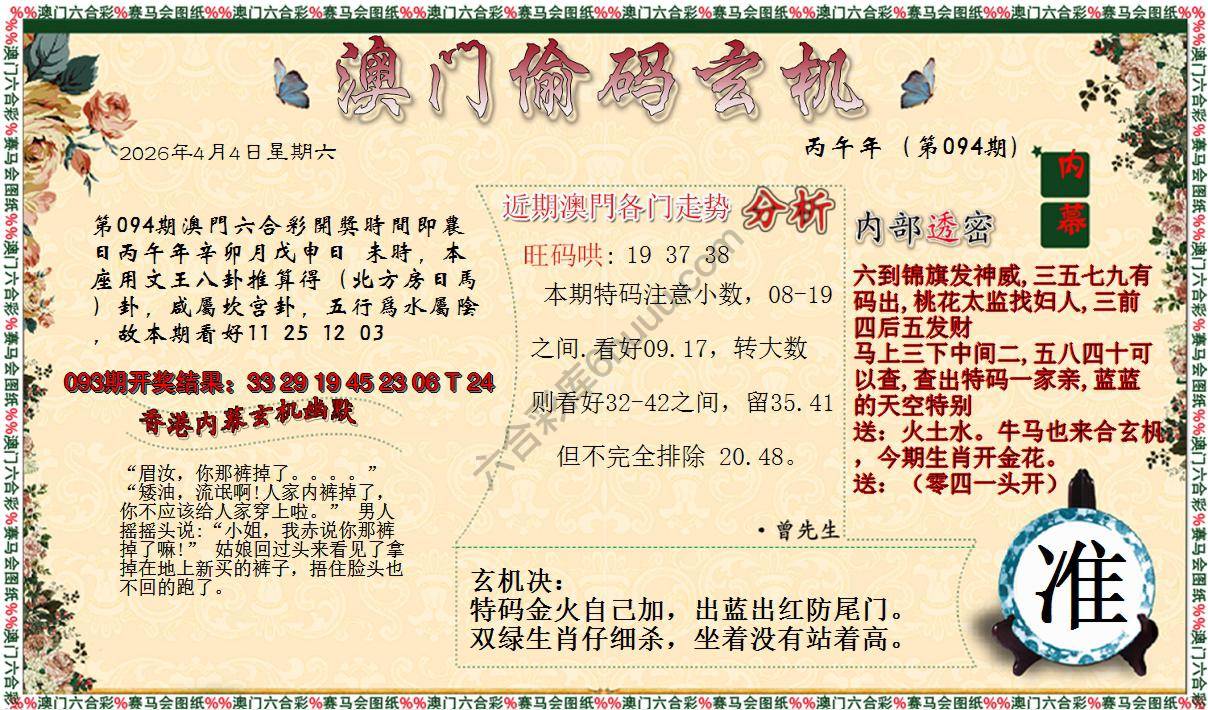 %%澳门六合彩%赛马会图纸%%澳门六合彩%赛马会图纸%%澳门六合彩%赛马会图纸%%澳门六合彩%赛马会图纸%%澳门六合彩%赛马会图纸%%澳门六合彩%赛马会图纸%%
澳门偷码玄机
2026年4月4日星期六
丙午年（第094期）
内
幕
第094期澳門六合彩開獎時間即農
日丙午年辛卯月戊申日 未時，本
座用文王八卦推算得（北方房日馬
）卦，咸屬坎宫卦，五行爲水屬陰
，故本期看好11 25 12 03
093期开奖结果：33 29 19 45 23 06 T 24
香港内幕玄机幽默
“眉汝，你那裤掉了。。。。”
“矮油，流氓啊!人家内裤掉了，
你不应该给人家穿上啦。” 男人
摇摇头说:“小姐，我赤说你那裤
掉了嘛!” 姑娘回过头来看见了拿
掉在地上新买的裤子，捂住脸头也
不回的跑了。
近期澳門各门走势 分析
旺码哄: 19 37 38
本期特码注意小数，08-19
之间.看好09.17，转大数
则看好32-42之间，留35.41
但不完全排除 20.48。
·曾先生
内部透密
六到锦旗发神威,三五七九有
码出,桃花太监找妇人,三前
四后五发财
马上三下中间二,五八四十可
以查,查出特码一家亲,蓝蓝
的天空特别
送：火土水。牛马也来合玄机
，今期生肖开金花。
送：（零四一头开）
玄机决：
特码金火自己加，出蓝出红防尾门。
双绿生肖仔细杀，坐着没有站着高。
准
%%澳门六合彩%赛马会图纸%%澳门六合彩%赛马会图纸%%澳门六合彩%赛马会图纸%%澳门六合彩%赛马会图纸%%澳门六合彩%赛马会图纸%%澳门六合彩%赛马会图纸%%